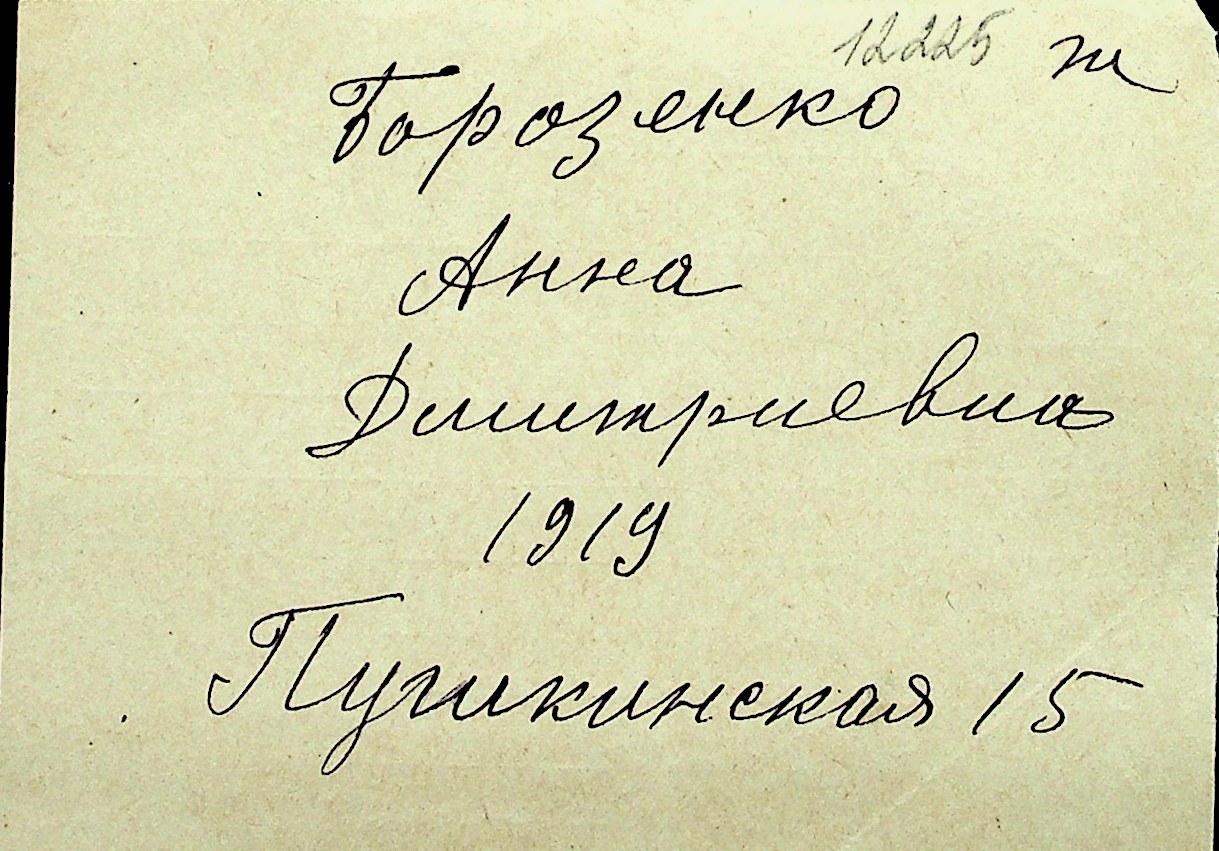 12225 ж
Борозенко
Анна
Дмитриевна
1919
Пушкинская 15